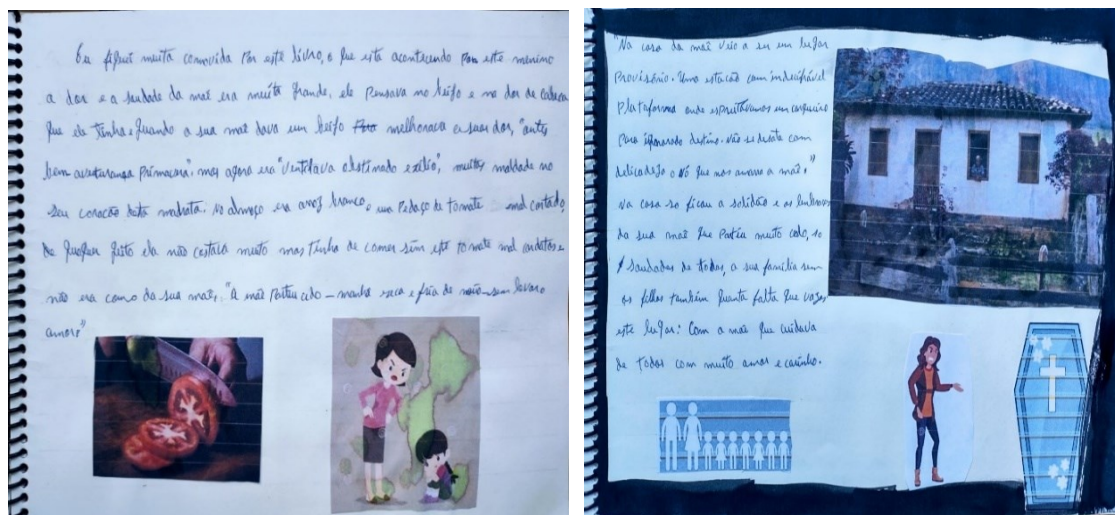 Eu fiquei muita comovida Por este livro, o que está acontecendo Por este menino
a dor e a saudade da mãe era muita grande, ele Pensava no beijo e na dor de cabeça
que ele tinha e quando a sua mãe dava um beijo melhorava a suas dor, "antes
bem aventurança Primavera". mas agora era "Ventilava obstinado exílio", muitas maldade no
seu coração desta madrasta. No almoço era arroz branco, um Pedaço de tomate mal cortado,
De qualquer jeito ela não gostava muito mas tinha de comer sim este tomate mal
não era como da sua mãe, "A mãe Partiu cedo — manhã seca e fria de maio — sem levar o
amor"
"Na casa da mãe veio a ser um lugar
Provisório. Uma estação com indecifrável
Plataforma onde espreitávamos um cargueiro
Para ignorado destino. Não se desata com
delicadeza o Nó que nos amarra a mãe,"
Na casa so ficou a solidão e as lembranças
da sua mãe que Partiu muito cedo, so
saudades de todos, a sua família sem
os filhos também quanta falta que
este lugar: Com a mãe que cuidava
de todos com muito amor e carinho.